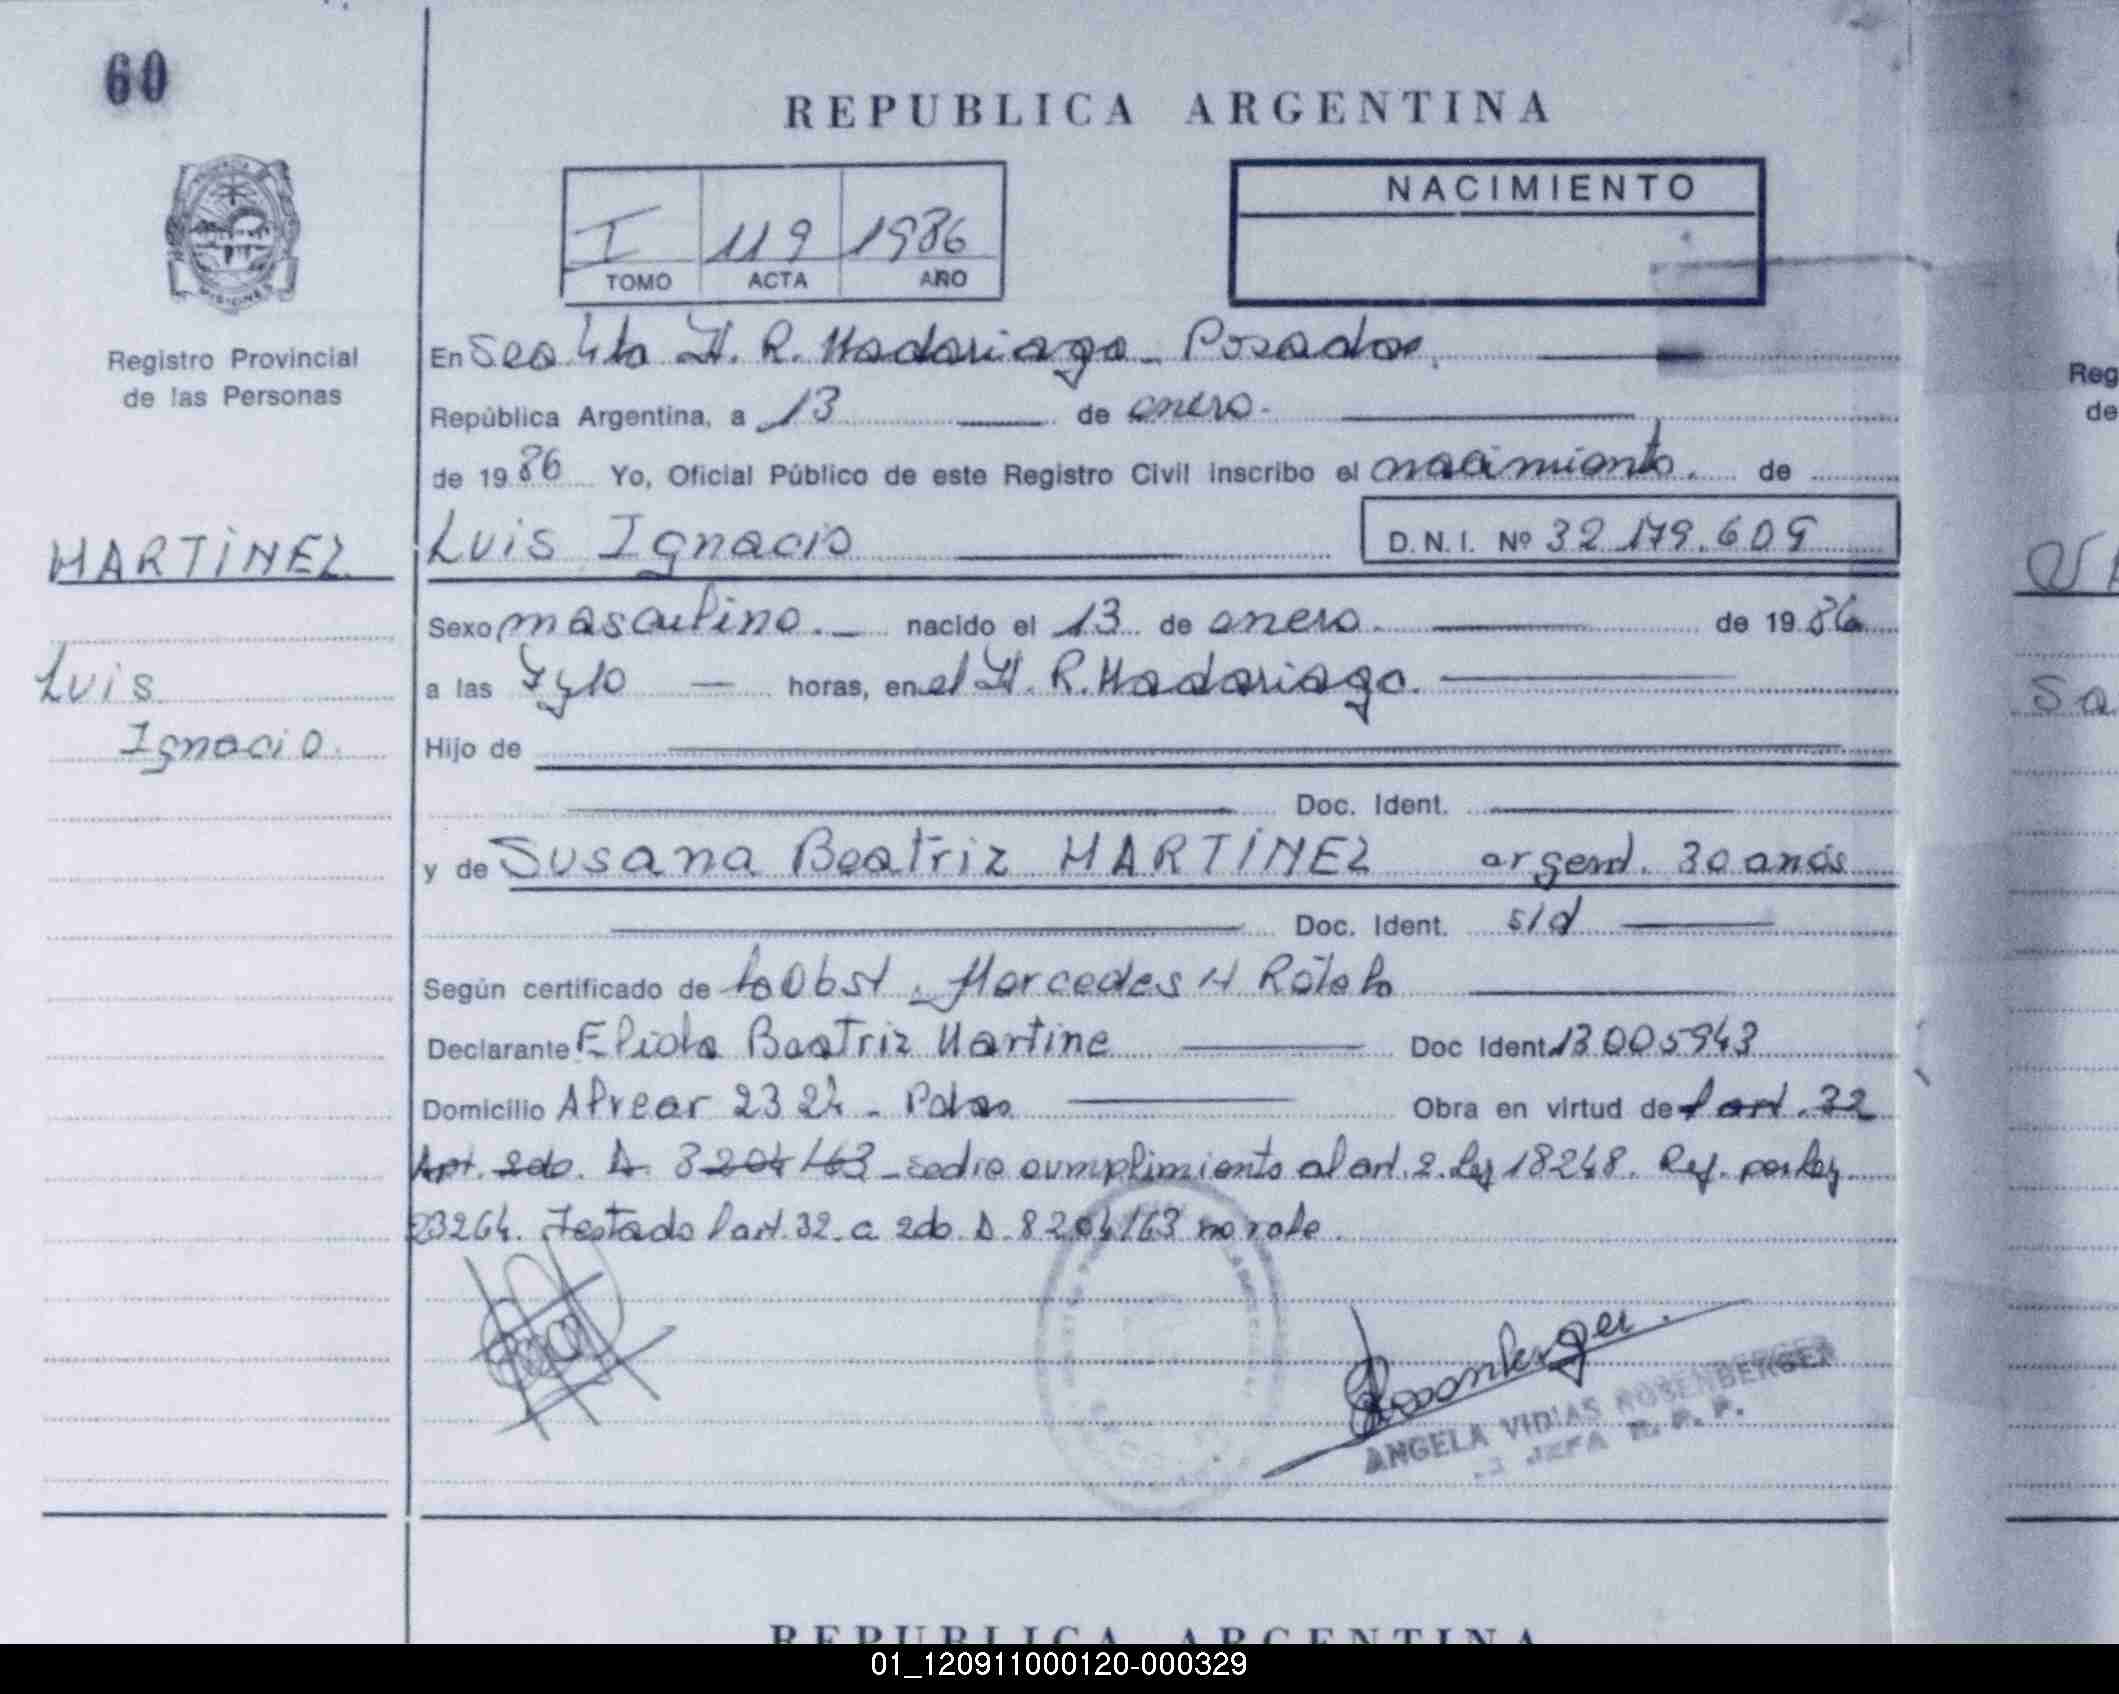 60
REPUBLICA ARGENTINA
NACIMIENTO
I 119 1986
TOMO ACTA AÑO
Registro Provincial
de las Personas
En H. R. Madariaga - Posadas.
República Argentina, a 13 de enero.
de 1986 Yo, Oficial Público de este Registro Civil inscribo el nacimiento. de
MARTINEZ
Luis Ignacio D.N.I. Nº 32.179.609
Sexo masculino. nacido el 13 de enero. de 1986
Luis
a las 7 y 10 horas, en el H. R. Madariaga.
Ignacio.
Hijo de
Doc. Ident.
y de Susana Beatriz MARTINEZ argent. 30 años
Doc. Ident. s/d
Según certificado de la Obst. Mercedes H
Declarante Beatriz Martine Doc Ident. 13005943
Domicilio Alvear 2324 - Pdas Obra en virtud de l art. 32
Apt. 2do. D. 8204/63 - se dio cumplimiento al art. 2. Ley 18248. Ref. por Ley
23264. Testado l art. 32. a 2do. D. 8204/63 no vale.
Rosenberger
ANGELA VIDIAS ROSENBERGER
JEFA R. P. P.
Reg
de
Sa
REPUBLICA ARGENTINA
01_120911000120-000329